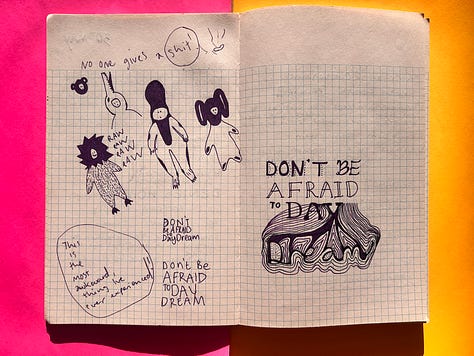 No one gives a shit!
RAW
RAW
RAW
RAW
This
is
the
most
awkward
thing I've
ever experienced!!
DON'T
AFRAID
DayDream
Don't Be
AFRAID
TO DAY
DREAM
DON'T BE
AFRAID
TO DAY
Dream